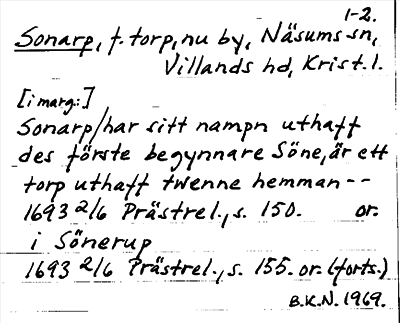 1-2.
Sonarp, f. torp, nu by, Näsums sn,
Villands hd, Krist. l.
[i marg:]
Sonarp/har sitt nampn uthaff
des förste begynnare Söne, är ett
torp uthaff twenne hemman--
1693 2/6 Prästrel., s. 150. or.
i Sönerup
1693 2/6 Prästrel., s. 155. or. (forts.)
B.K.N. 1969.